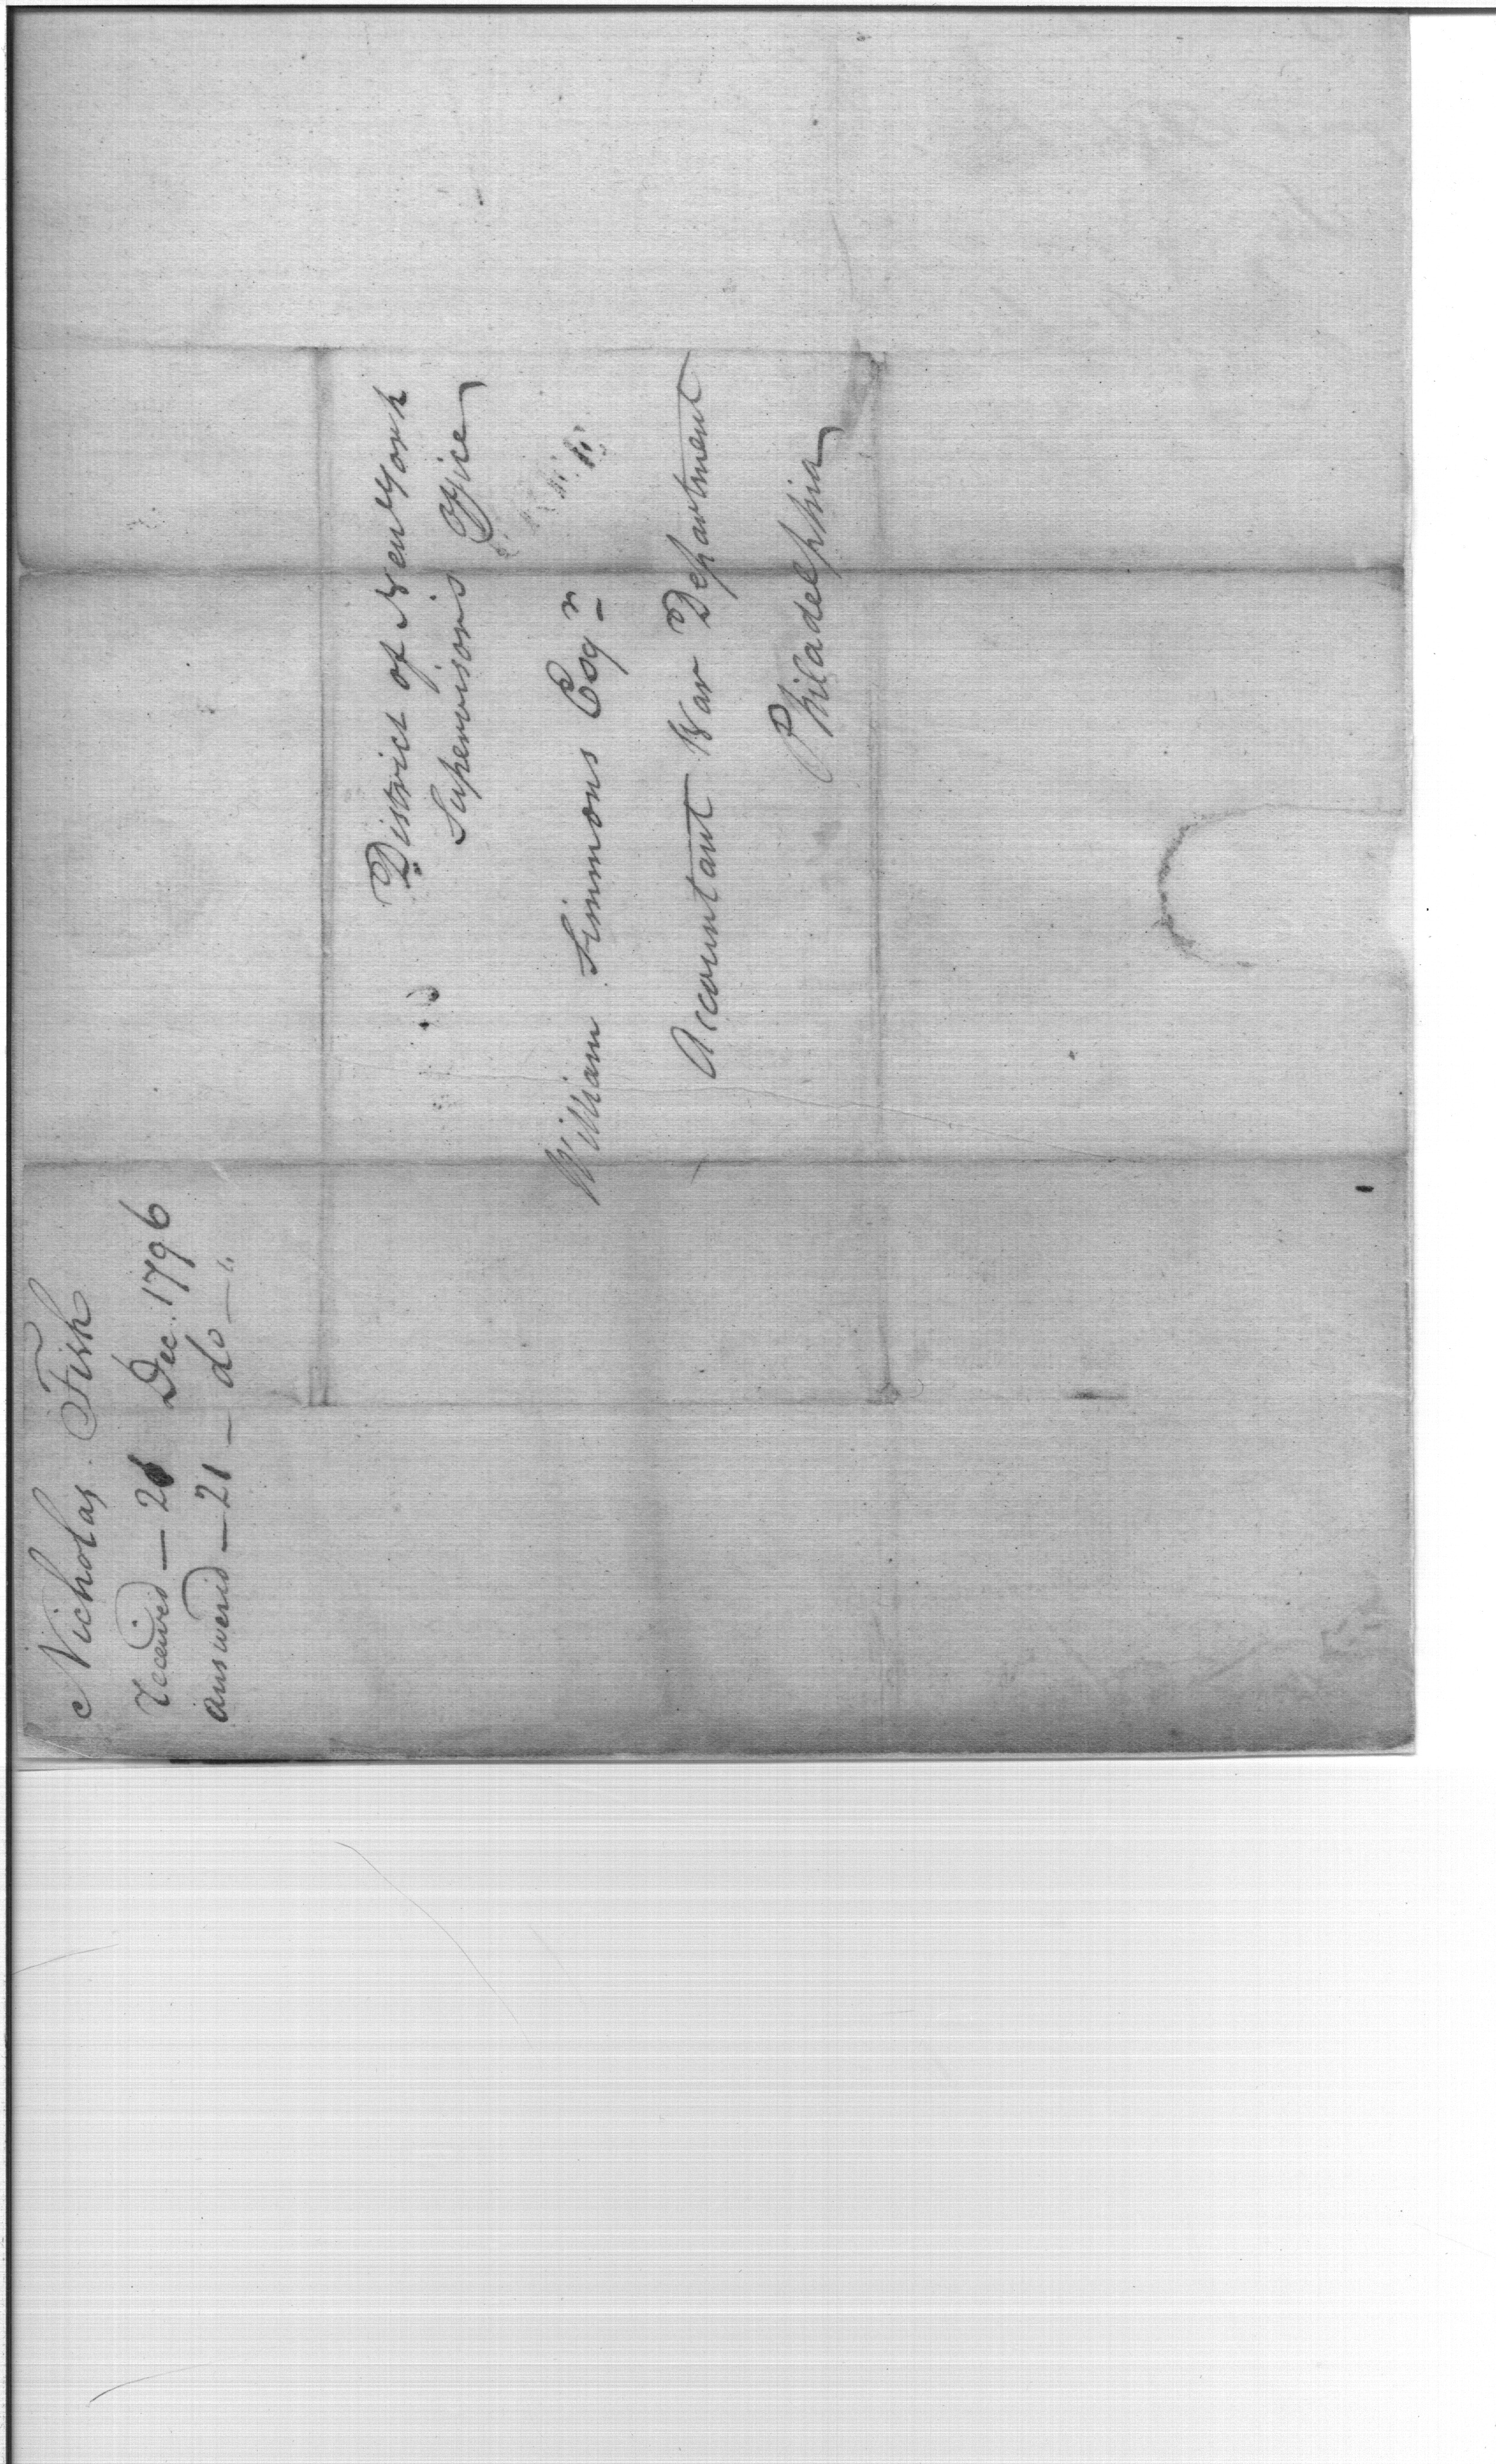 Nicholas Fish
received — Dec. 1796
answered — 21 — do — "
District of New York
Supervisor's Office
William Simmons Esqr
Accountant War Department
Philadelphia